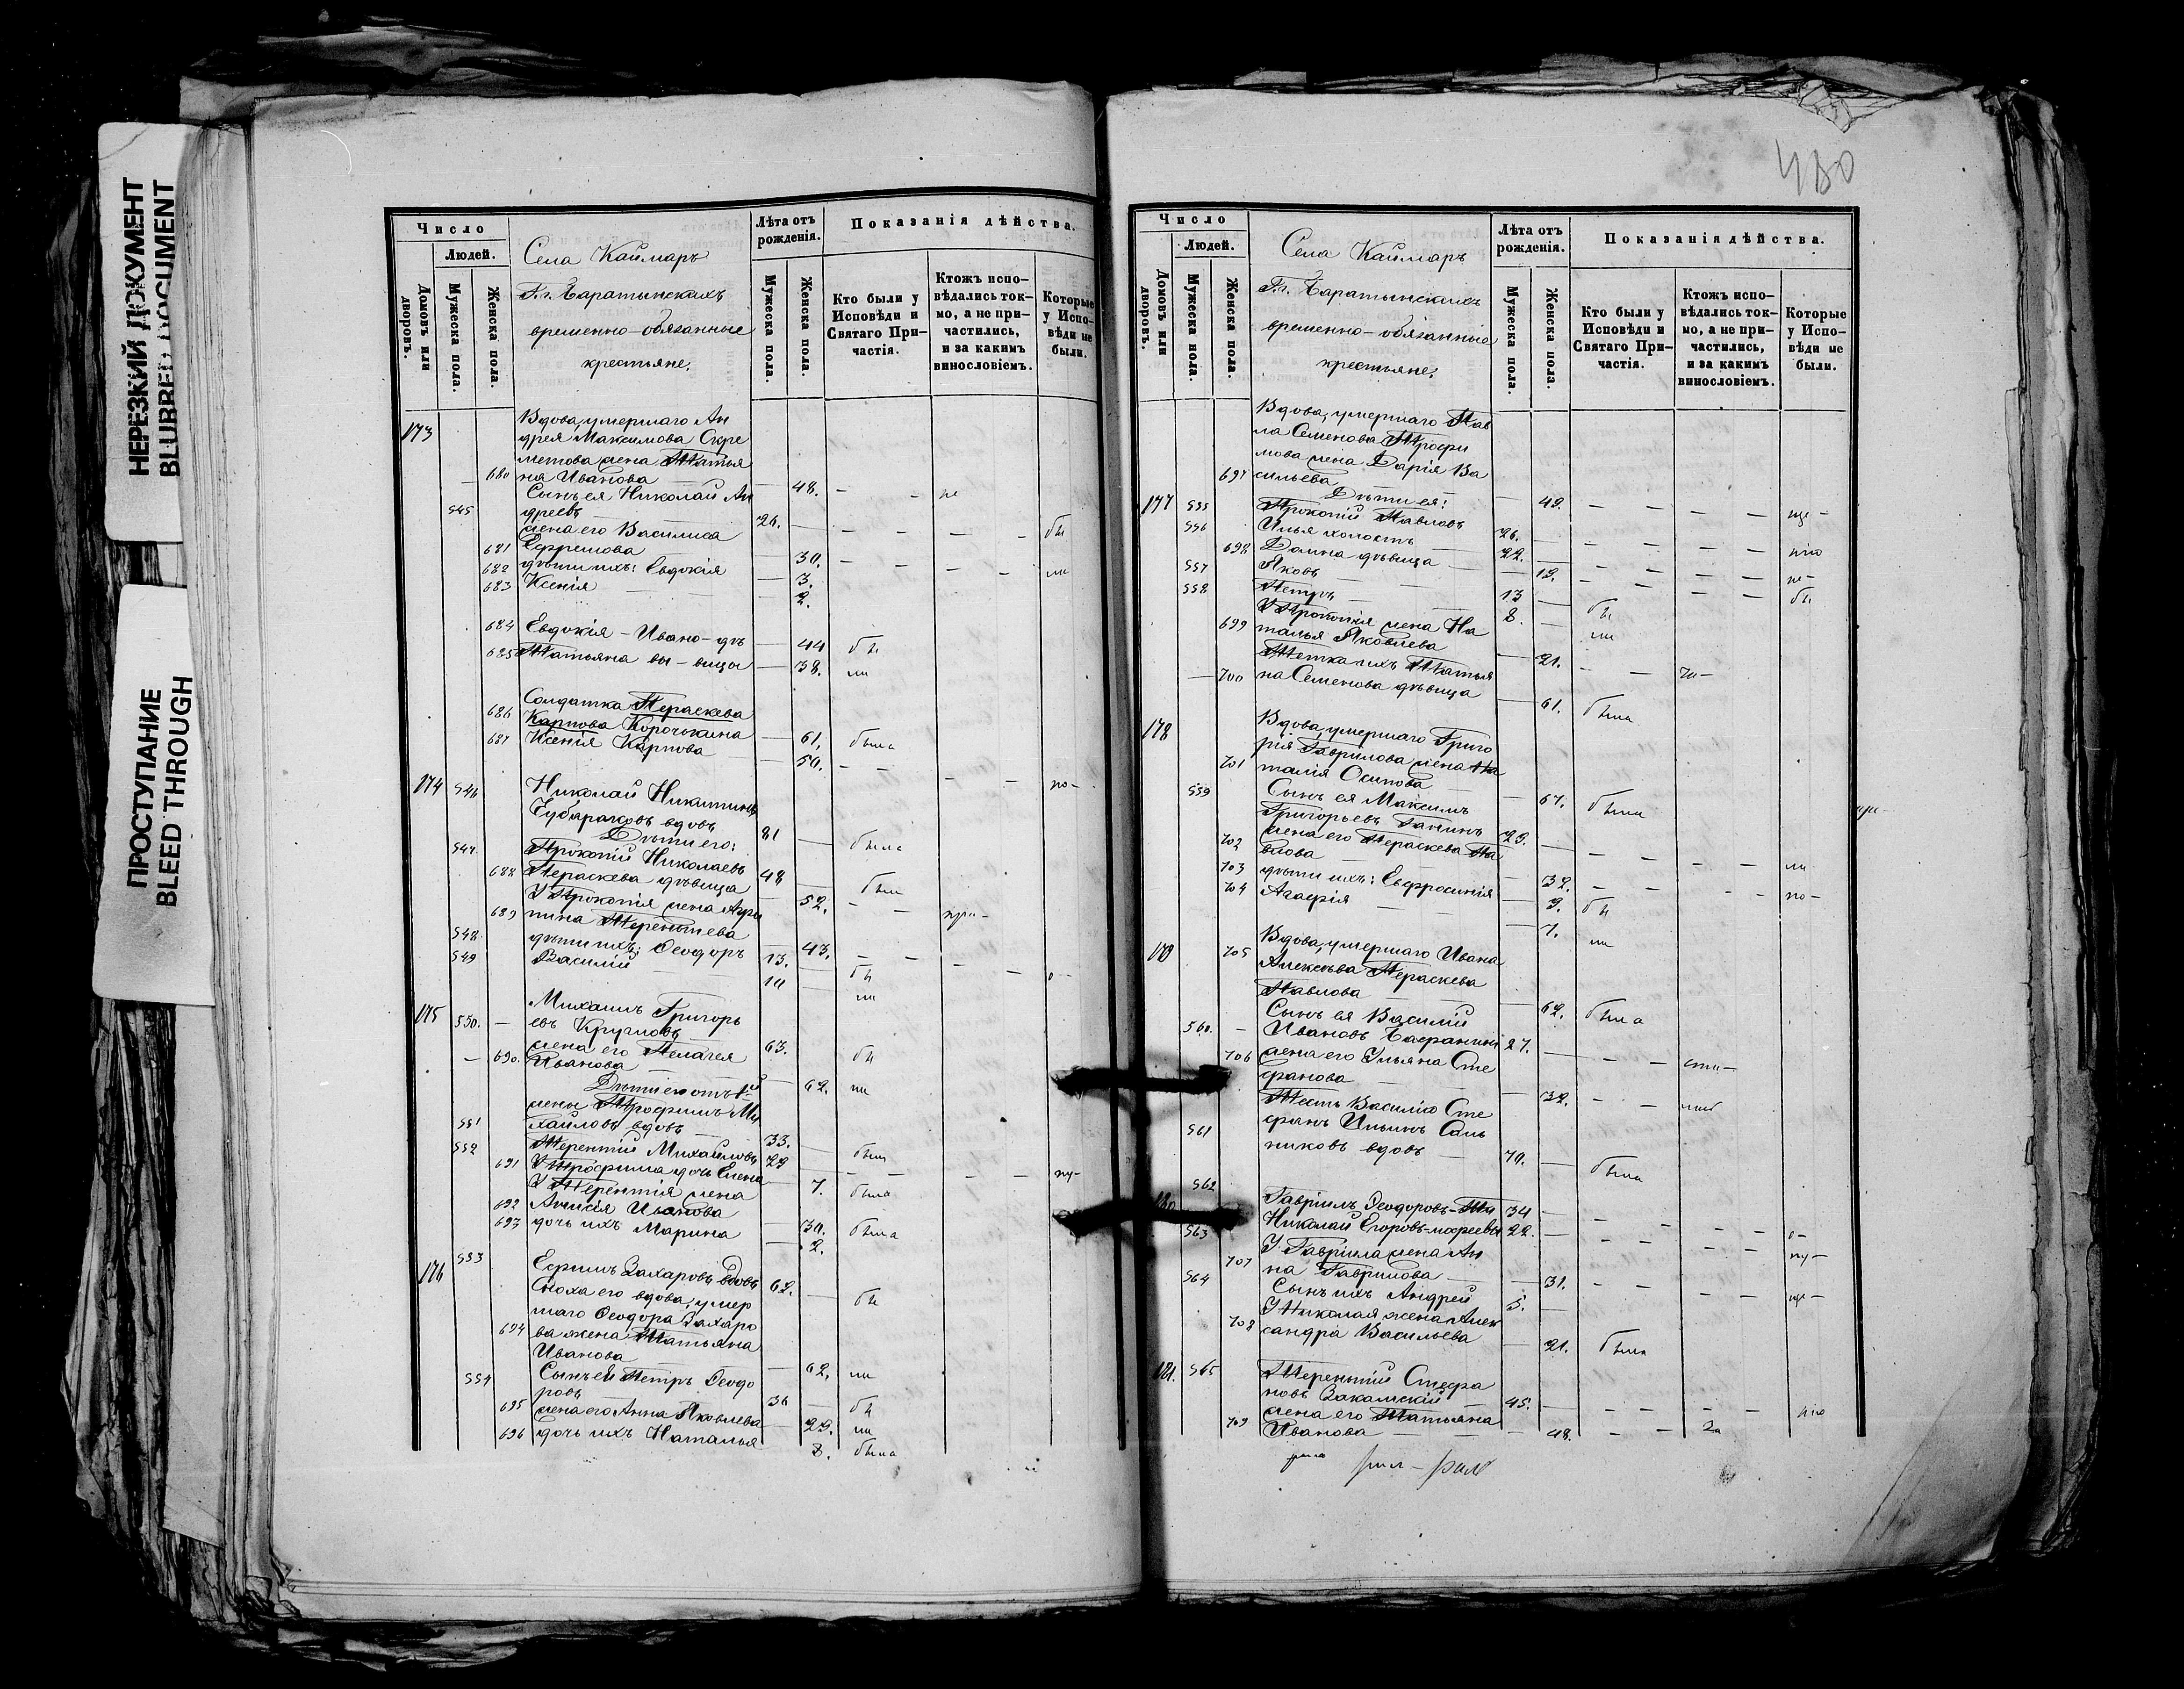 НЕРЕЗКИЙ ДОКУМЕНТ
BLURRED DOCUMENT
ПРОСТУПАНИЕ
BLEED THROUGH
Число
Людей.
Домовъ или дворовъ.
Мужеска пола.
Женска пола.
Села Каймаръ
Г.г. Баратынскихъ
временно-обязанные
крестьяне.
Лѣта отъ рожденія.
Мужеска пола.
Женска пола.
Показанія дѣйства.
Кто были у Исповѣди и Святаго Причастія.
Ктожъ исповѣдались токмо, а не причастились, и за какимъ винословіемъ.
Которые у Исповѣди не были.
173 Вдова, умершаго Ан
дрея Максимова Скре
метова жена Татья
680 на Иванова 48.
Сынъ ея Николай Ан
545 дреевъ 26.
жена его Василиса
681 Ефремова 30.
682 дѣти ихъ: Евдокія 3.
683 Ксенія 2.
684 Евдокія - Ивано - дѣ 44 бы
685 Татьяна вы - вицы 38. ли
Солдатка Параскева
686 Карпова Корочкина 61. была
687 Ксенія Карпова 50.
174 546 Николай Никитинъ
Чубараковъ вдовъ 81 былъ
Дѣти его:
547 Прокопій Николаевъ 48
688 Параскева дѣвица 52.
У Прокопія жена Агри
689 пина Терентьева 43.
548 дѣти ихъ: Ѳеодоръ 13. бы
549 Василій 10 ли
175 550. Михаилъ Григорь
евъ Кругловъ 63. бы
жена его Пелагея
690. Иванова 62. ли
Дѣти его отъ 1й
жены Трофимъ Ми
551 хайловъ вдовъ 33. былъ
552 Терентій Михайловъ 29
691 У Трофима дочь Елена 7. была
У Терентія жена
692 Анисія Иванова 30. была
693 дочь ихъ Марина 2.
176 553 Ефимъ Захаровъ вдовъ 62. бы
Сноха его вдова, умер
шаго Ѳеодора Захаро
694 ва жена Татьяна
Иванова 62, ли
554 Сынъ ей Петръ Ѳеодо
ровъ 36 бы
695 жена его Анна Яковлева 29. ли
696 дочь ихъ Наталья 8. была
480
Число
Людей.
Домовъ или дворовъ.
Мужеска пола.
Женска пола.
Села Каймаръ
Г.г. Баратынскихъ
временно-обязанные
крестьяне.
Лѣта отъ рожденія.
Мужеска пола
Женска пола.
Показанія дѣйства.
Кто были у Исповѣди и Святаго Причастія.
Ктожъ исповѣдались токмо, а не причастились, и за какимъ винословіемъ.
Которые у Исповѣди не были.
Вдова, умершаго Пав
ла Семенова Трофи
мова жена Дарія Ва
697 сильева 49.
Дѣти ея:
177 555 Прокопій Павловъ 26.
556 Илья холостъ 22.
698 Домна дѣвица 19.
557 Яковъ 13 бы
558 Петръ 8. ли
У Прокопія жена На
699 талья Яковлева 21.
Тетка ихъ Татья
700 на Семенова дѣвица 61. была
178 Вдова, умершаго Григо
рія Гаврилова жена На
701 талія Осипова 67. была
559 Сынъ ея Максимъ
Григорьевъ Ганинъ 29.
жена его Параскева Па
702 влова 32.
703 дѣти ихъ: Евфросинія 9. бы
704 Агафія 7. ли
179 705 Вдова, умершаго Ивана
Алексѣева Параскева
Павлова 62. была
Сынъ ея Василій
560. Ивановъ 27.
706 жена его Ульяна Сте
фанова 32.
Тесть Василію Сте
561 фанъ Ильинъ Саль
никовъ вдовъ 70. былъ
180 562 Гавріилъ Ѳеодоровъ-Ти 34
563 Николай Егоровъ-мофеевы 22.
У Гавріила жена Ан
707 на Гаврилова 31.
564 Сынъ ихъ Андрей 5.
У Николая жена Алек
708 сандра Васильева 21. была
181. 565 Терентій Стефа
новъ Закамскій 45.
жена его Татьяна
709 Иванова 48.